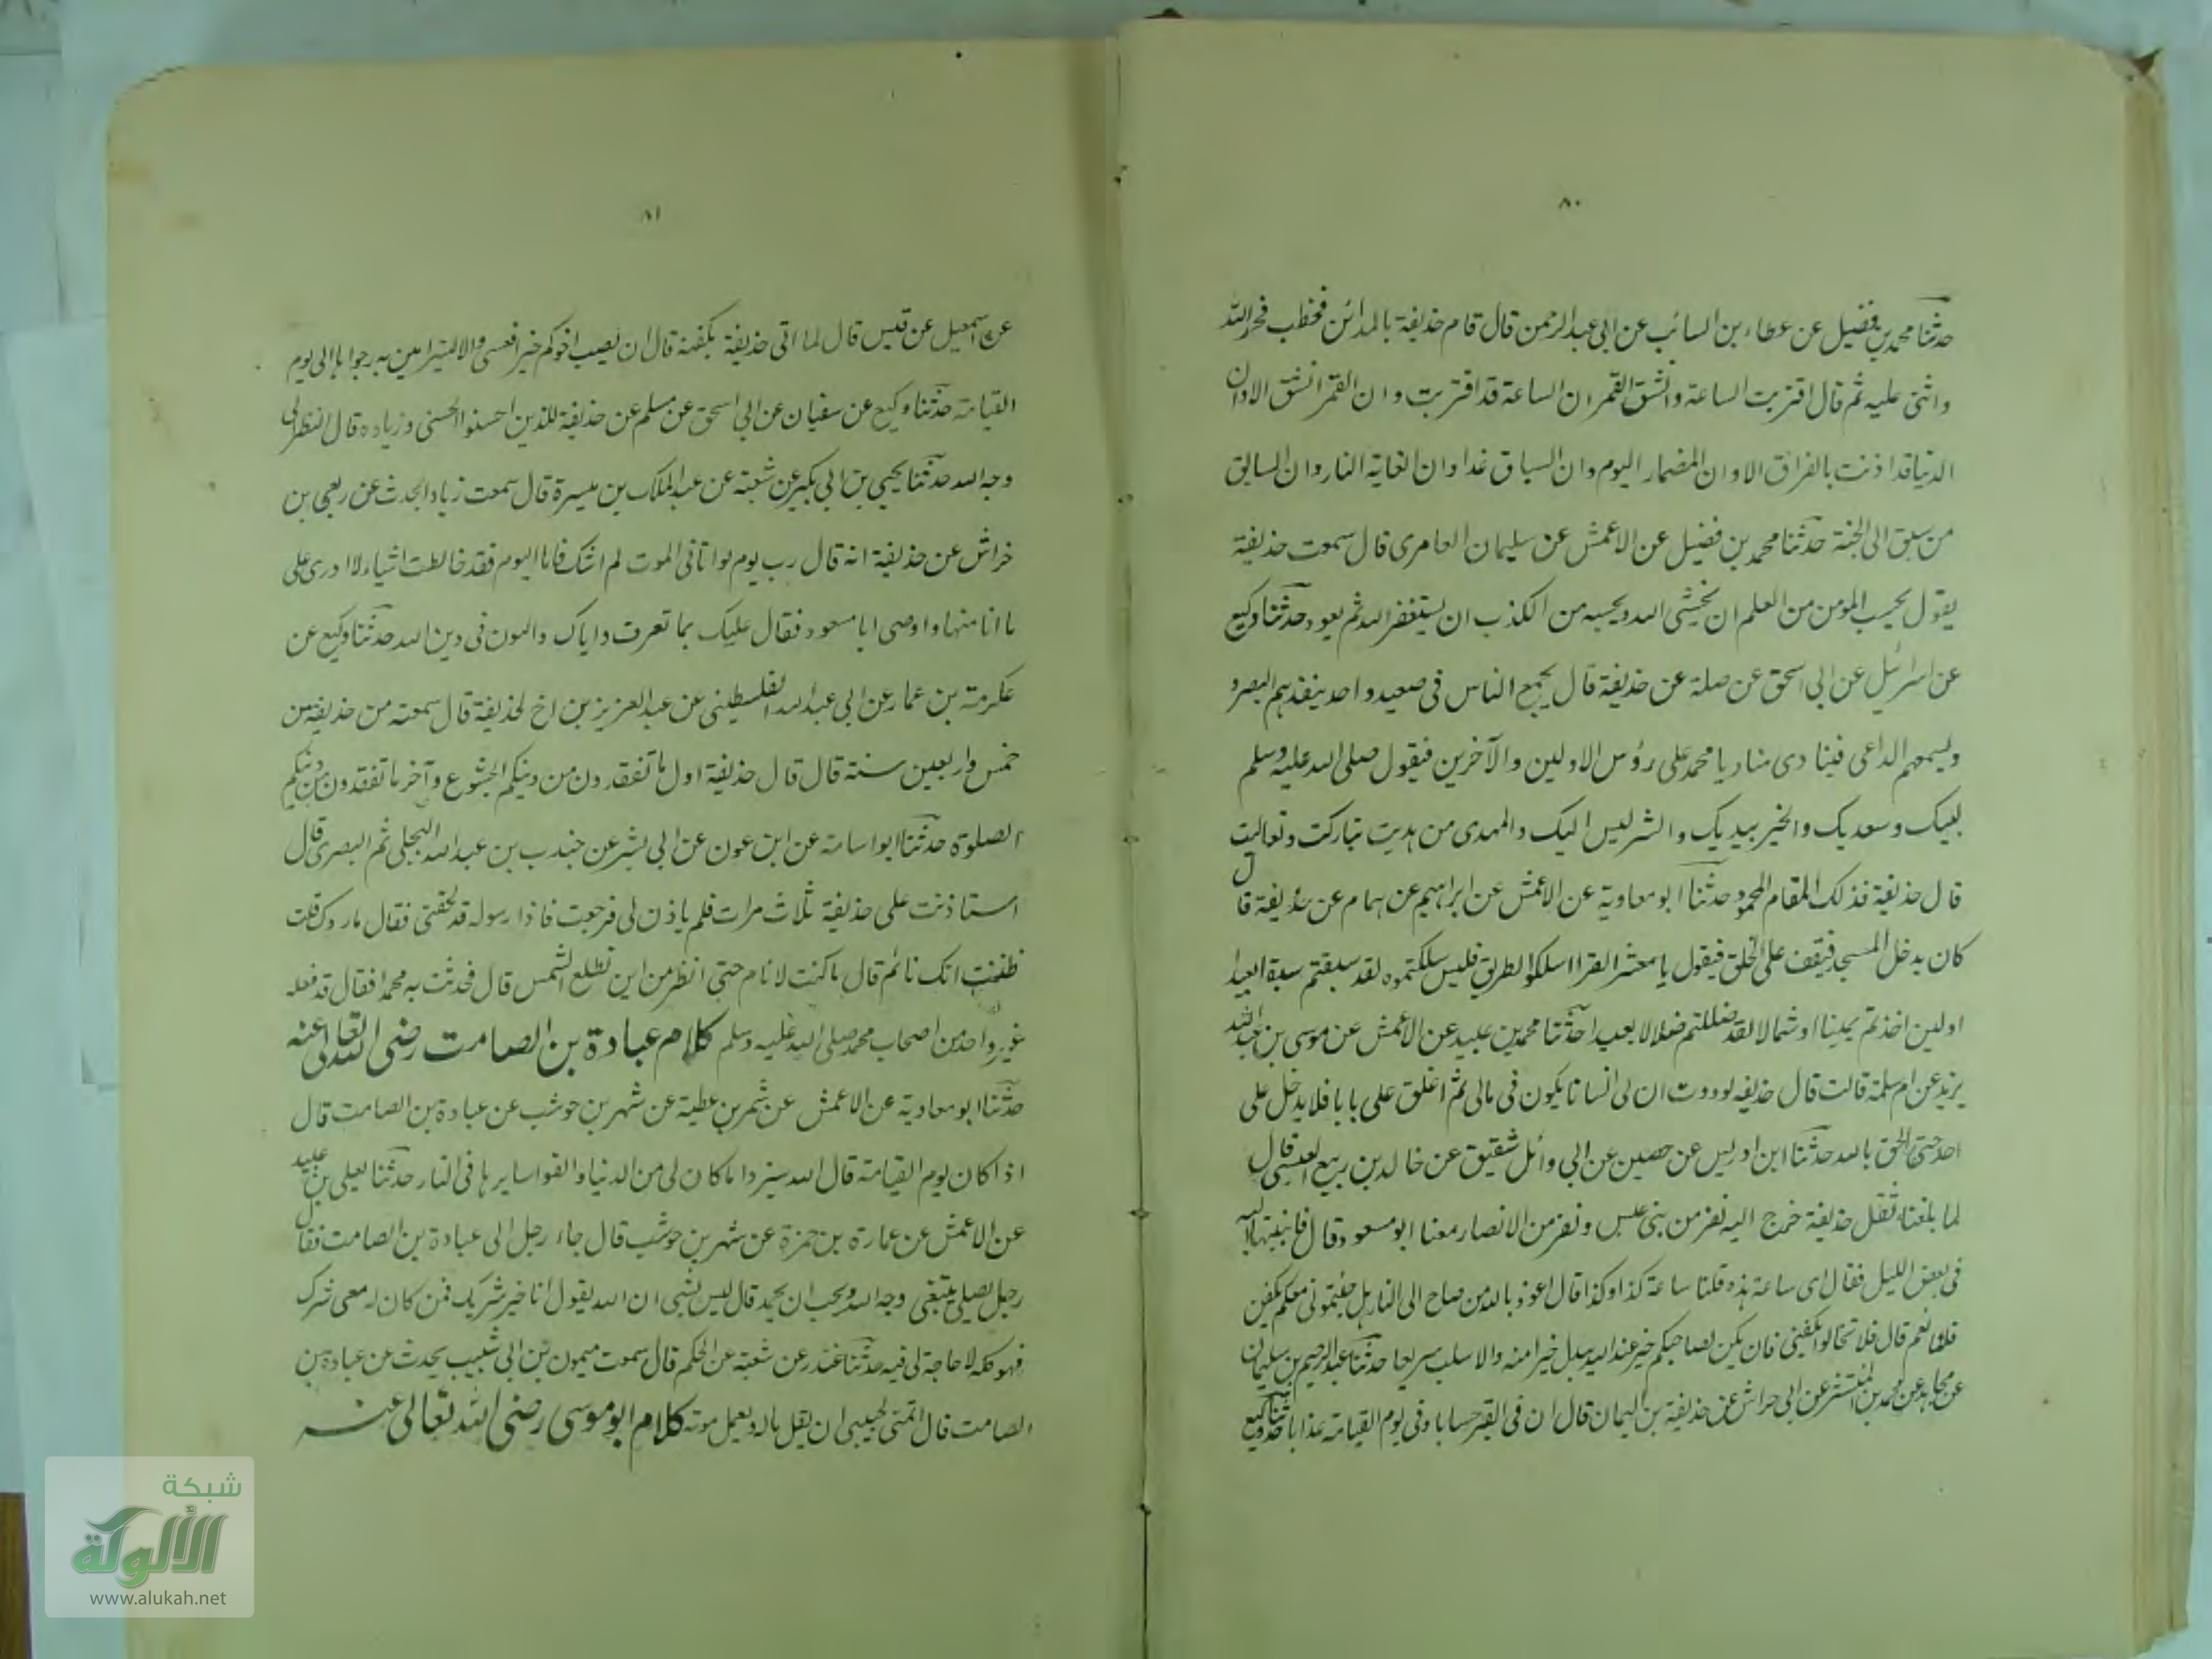 ٨٠
حدثنا محمد بن فضيل عن عطاء بن السائب عن ابى عبد الرحمن قال قام حذيفة بالمدائن فخطب فحمد الله
واثنى عليه ثم قال اقتربت الساعة وانشق القمر ان الساعة قد اقتربت وان القمر انشق الا وان
الدنيا قد اذنت بالفراق الا وان المضمار اليوم وان السباق غدا وان الغاية النار وان السابق
من سبق الى الجنة حدثنا محمد بن فضيل عن الاعمش عن سليمان العامرى قال سمعت حذيفة
يقول بحسب المؤمن من العلم ان يخشى الله وبحسبه من الكذب ان يستغفر الله ثم يعود حدثنا وكيع
عن اسرائيل عن ابى اسحق عن صلة عن حذيفة قال يجمع الناس فى صعيد واحد ينفذهم البصر و
ويسمعهم الداعى فينادى مناد يا محمد على رؤس الاولين والآخرين فيقول صلى الله عليه وسلم
لبيك وسعديك والخير بيديك والشر ليس اليك والمهدى من هديت تباركت وتعاليت
قال حذيفة فذلك المقام المحمود حدثنا ابو معاوية عن الاعمش عن ابراهيم عن همام عن حذيفة قال
كان يدخل المسجد فيقف على الحلق فيقول يا معشر القرا اسلكوا الطريق فليس سلكتموه لقد سبقتم سبقا بعيدا
اولين اخذتم يمينا او شمالا لقد ضللتم ضلالا بعيدا حدثنا محمد بن عبيد عن الاعمش عن موسى بن عبد الله
يزيد عن ام سلمة قالت قال حذيفه لوددت ان لى انسانا يكون فى مالى ثم اغلق على بابا فلا يدخل على
احد حتى الحق بالله حدثنا ابن ادريس عن حصين عن ابى وائل شقيق عن خالد بن ربيع العبسى قال
لما بلغنا ثقل حذيفة خرج اليه نفر من بنى عبس ونفر من الانصار معنا ابو مسعود قال فانتهينا اليه
فى بعض الليل فقال اى ساعة هذه قلنا ساعة كذا وكذا قال اعوذ بالله من صباح الى النار هل جئتمونى معكم بكفن
قلنا نعم قال فلا تغالوا بكفنى فان يكن لصاحبكم خير عند الله يبدل خيرا منه والا سلب سريعا حدثنا عبد الرحيم بن سليمان
عن مجاهد عن محمد بن المنتشر عن ابن حراش عن حذيفة بن اليمان قال ان فى القبر حسابا وفى يوم القيامة عذابا حدثنا وكيع
٨١
عن اسمعيل عن قيس قال لما اتى حذيفة بكفنه قال ان يصب اخوكم خيرا فعسى والا ليترامين به رجواها الى يوم
القيامة حدثنا وكيع عن سفيان عن ابى اسحق عن مسلم عن حذيفة للذين احسنوا الحسنى وزيادة قال النظر الى
وجه الله حدثنا يحيى بن ابى بكير عن شعبة عن عبد الملك بن ميسرة قال سمعت زيادا يحدث عن ربعى بن
خراش عن حذيفة انه قال رب يوم لو اتانى الموت لم اشك فاما اليوم فقد خالطت اشياء لا ادرى على
ما انا منها واوصى ابا مسعود فقال عليك بما تعرف واياك والتلون فى دين الله حدثنا وكيع عن
عكرمة بن عمار عن ابى عبد الله الفلسطينى عن عبد العزيز بن اخ لحذيفة قال سمعته من حذيفة من
خمس واربعين سنة قال قال حذيفة اول ما تفقدون من دينكم الخشوع وآخر ما تفقدون من دينكم
الصلوة حدثنا ابو اسامة عن ابن عون عن ابى بشر عن جندب بن عبد الله البجلى ثم البصرى قال
استاذنت على حذيفة ثلاث مرات فلم ياذن لى فرجعت فاذا رسوله قد لحقنى فقال ما ردك قلت
ظننت انك نائم قال ما كنت لانام حتى انظر من اين تطلع الشمس قال فحدثت به محمدا فقال قد فعله
غير واحد من اصحاب محمد صلى الله عليه وسلم كلام عبادة بن الصامت رضى الله تعالى عنه
حدثنا ابو معاوية عن الاعمش عن شمر بن عطية عن شهر بن حوشب عن عبادة بن الصامت قال
اذا كان يوم القيامة قال الله ميزوا ما كان لى من الدنيا والقوا سايرها فى النار حدثنا يعلى بن عبيد
عن الاعمش عن عمارة بن حمزة عن شهر بن حوشب قال جاء رجل الى عبادة بن الصامت فقال
رجل يصلى يبتغى وجه الله ويحب ان يحمد قال ليس بشى ان الله يقول انا خير شريك فمن كان له معى شرك
فهو كله لا حاجة لى فيه حدثنا غندر عن شعبة عن الحكم قال سمعت ميمون بن ابى شبيب يحدث عن عبادة بن
الصامت قال اتمنى لحبيبى ان يقل ماله ويعجل موته كلام ابو موسى رضى الله تعالى عنه
شبكة
الألوكة
www.alukah.net